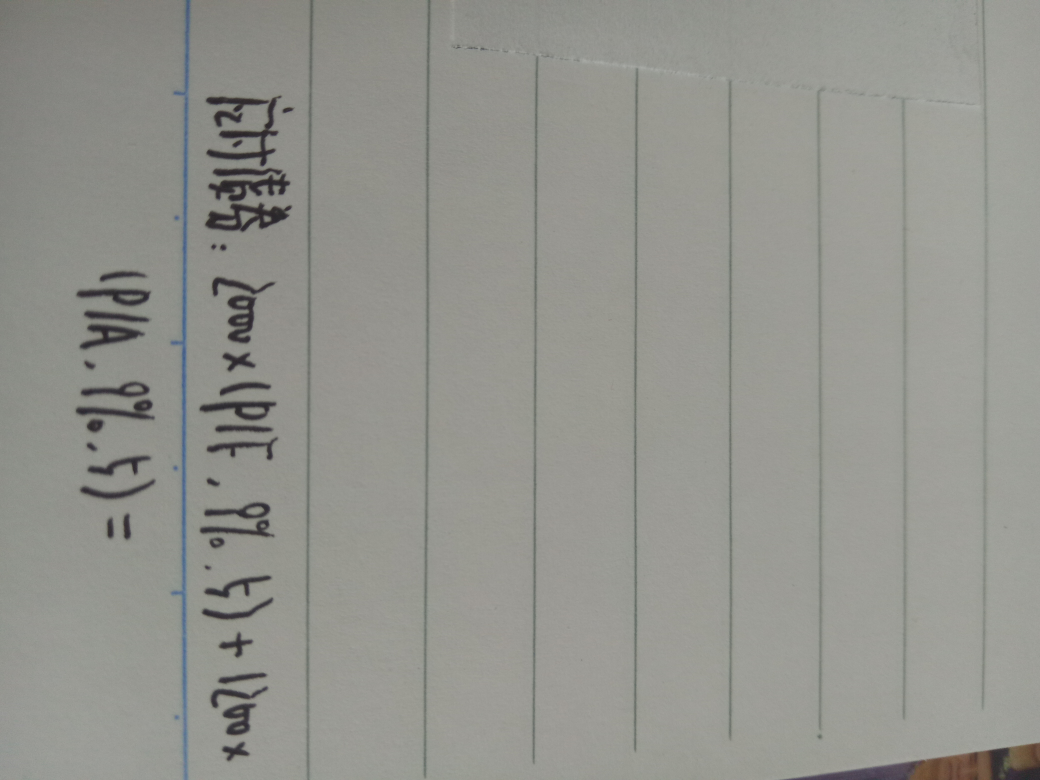 应付债券：2000×(P/F，9%，5)+1200×
(P/A，9%，5)=